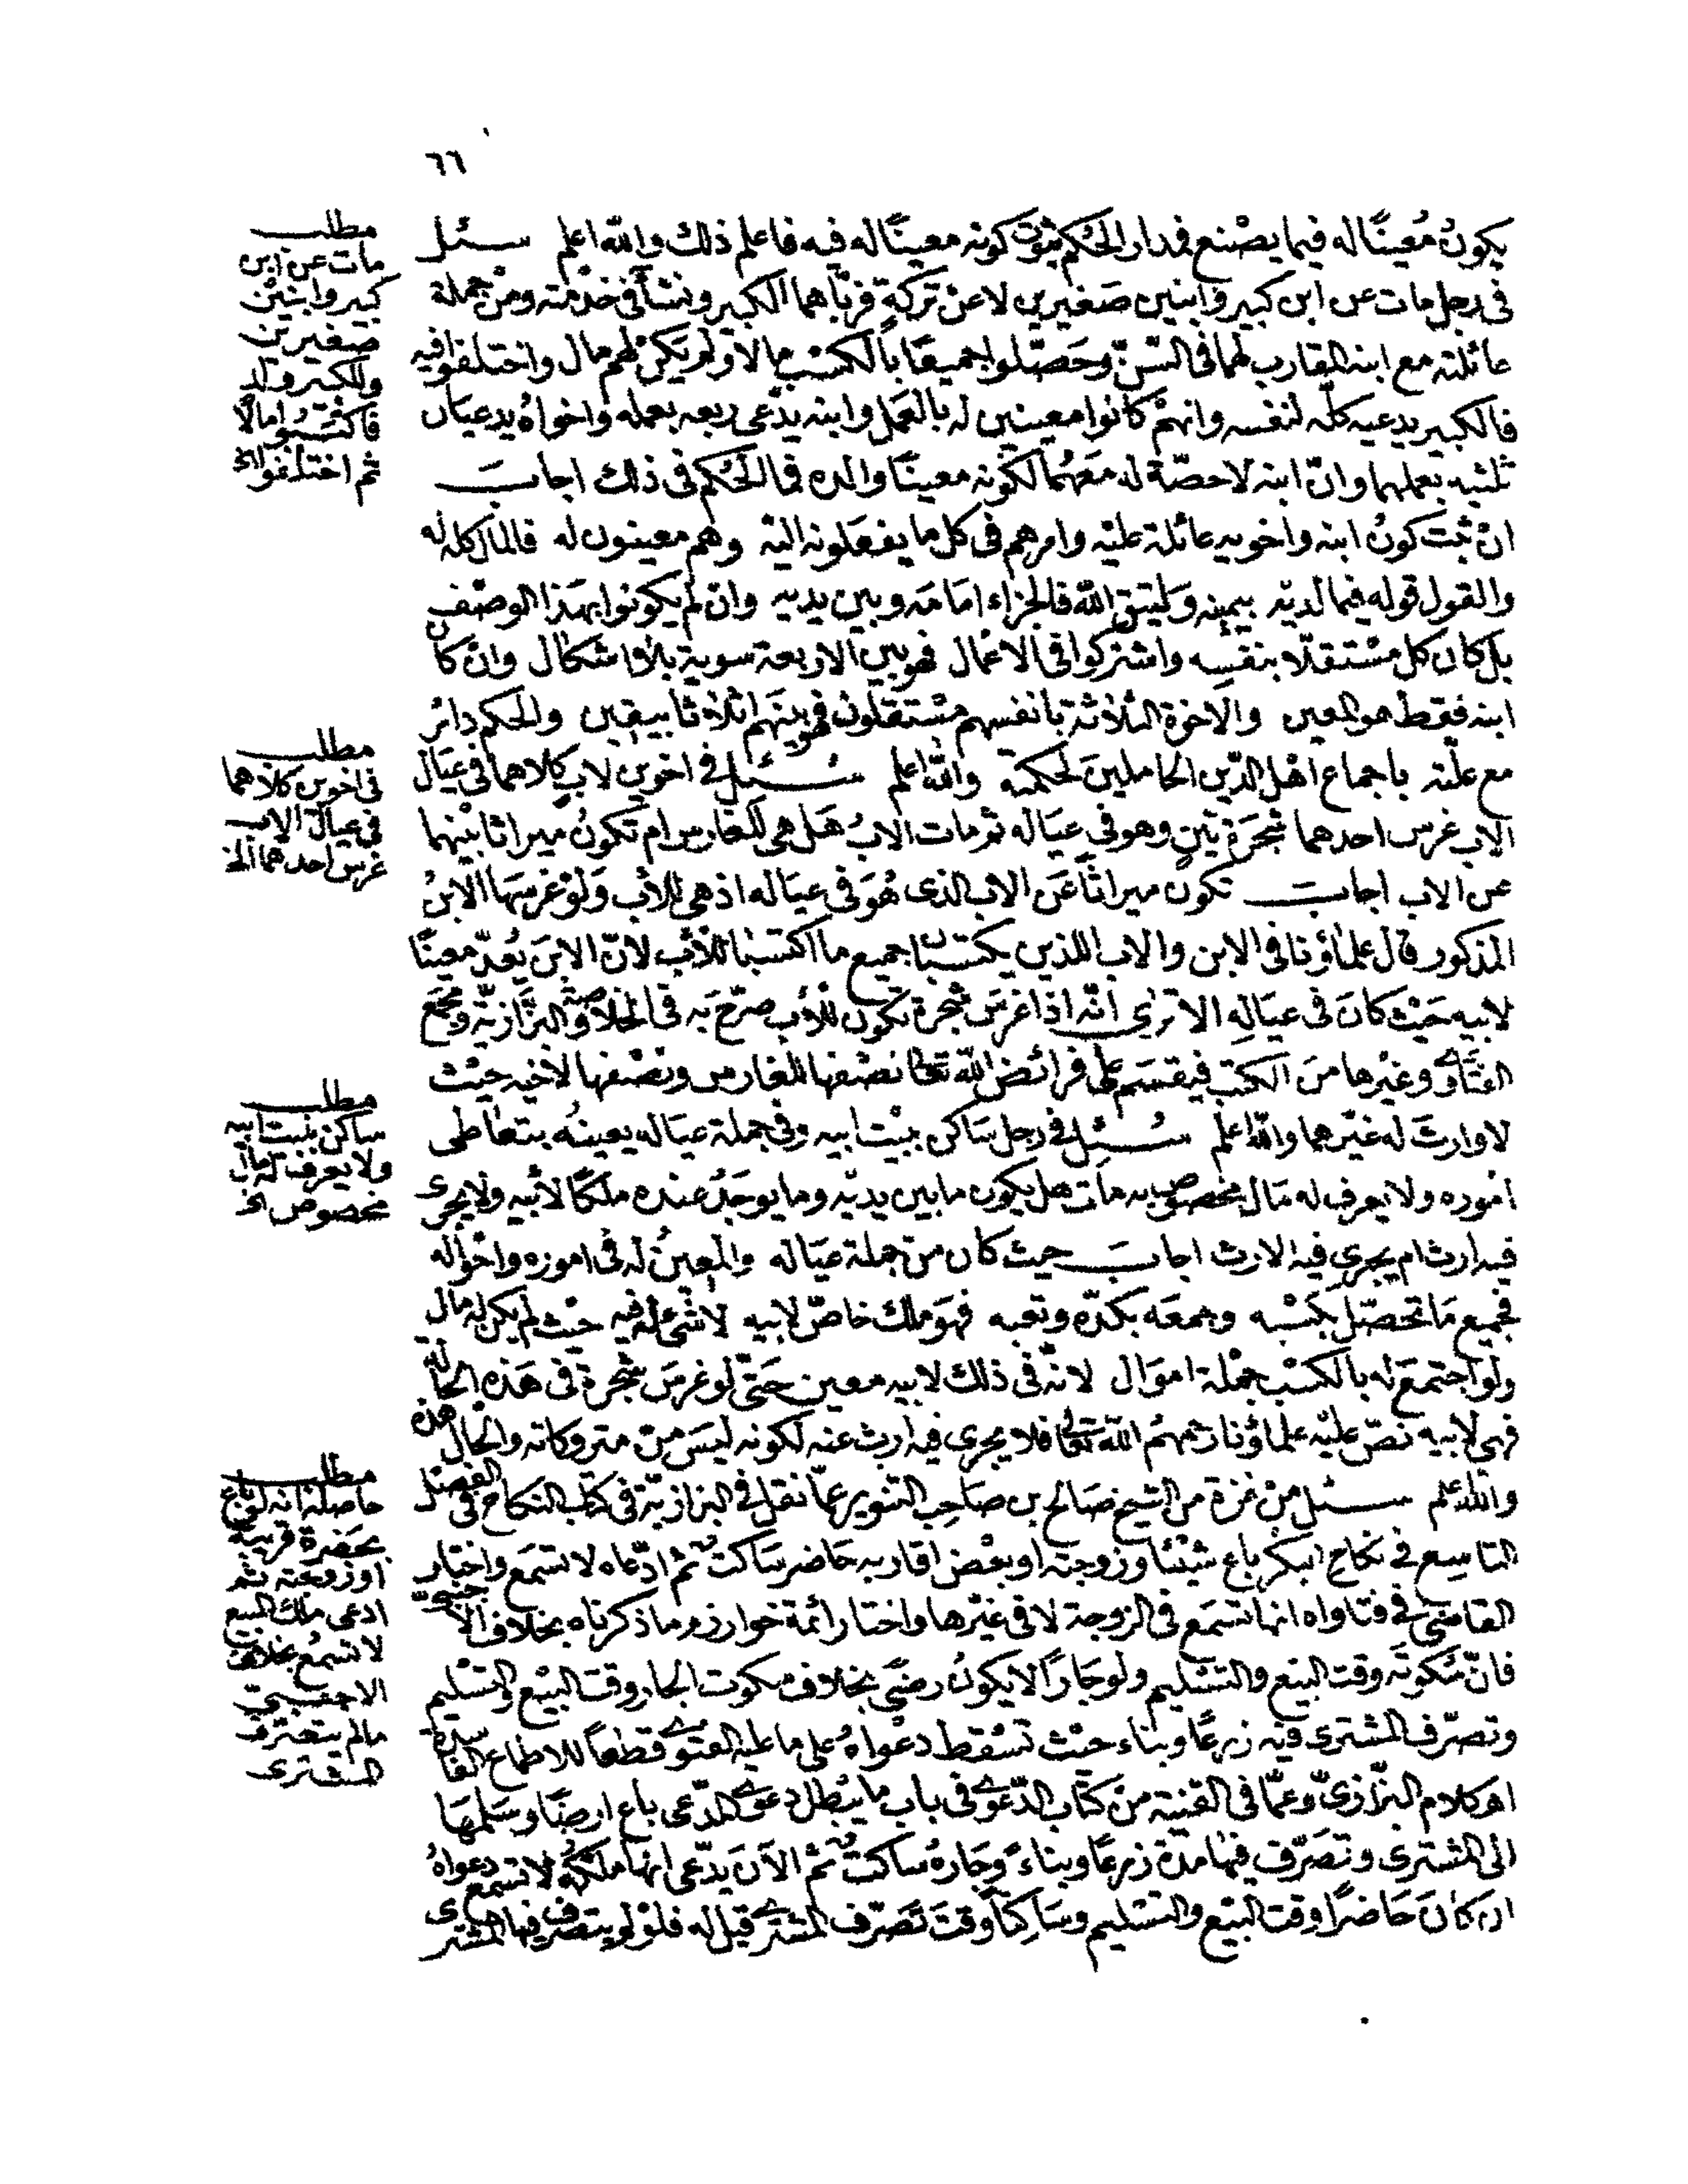 ٦٦
يكونُ مُعينًا له فيما يصنع فمدار الحكم ثبوت كونه معينًا له فيه فاعلم ذلك والله اعلم سئل
فى رجل مات عن ابن كبير وابنين صغيرين لا عن تركة فربّاهما الكبير ونشآ فى خدمته ومن جملة
عائلته مع ابنه المقارب لهما فى السّنّ وحَصّلوا جميعًا بالكسْب مالا ولم يكن لهم مال واختلفوا فيه
فالكبير يدعيه كلّه لنفسه وانهمْ كانوا معينين له بالعَمل وابنه يدّعى ربعه بعمله واخواهُ يدعيان
ثلثيه بعملهما وانّ ابنه لا حصّة له معَهُما لكونه معينًا والده فما الحُكم فى ذلك اجابَ
انْ ثبَت كونُ ابنه واخويه عائلة عليْه وامرهم فى كل ما يفعَلونه اليْه وهم معينون له فالمال كله له
والقول قوله فيما لديْه بيمينه وَليتق الله فالجزاء امَامَه وبين يديه وان لم يكونوا بهَذا الوصْف
بل كان كل مسْتقلًا بنفسِه واشتركوا فى الاعْمال فهو بين الاربعة سوية بلا اشكال وانْ كان
ابنه فقط هو المعين والاخوة الثلاثة بانفسهم مسْتقلون فهو بينَهم اثلاثا بيقين والحكم دائر
مع علّته باجماع اهْل الدّين الحاملينَ لحكمته والله اعلم سُئل فى اخوين لابٍ كلاهما فى عيَال
الاب غرس احدهما شجَرَة تين وهو فى عيَاله ثم مات الابُ هَل هى للغارس ام تكونُ ميراثا بيْنهما
عن الاب اجابَ تكون ميراثًا عَن الاب الذى هُوَ فى عيَاله اذ هى للأب وَلوْ غرسَهَا الابنُ
المذكور قال علماؤنا فى الابن والاب اللذين يكتسبان جميع ما اكتسبَا للأب لانّ الابنَ يُعدّ معينًا
لابيه حَيْث كانَ فى عيَالِه الا ترى انّه اذا غرسَ شجرة تكون للأب صرّح به فى الخلاصة والبزّازيّة ومجمَع
الفتَاوى وغيْرها منَ الكتب فيقسَم على فرائض الله تعالى نصْفها للغارس ونصْفها لاخيه حيْث
لا وارثَ له غيْرهما والله اعلم سُئِل فى رجل سَاكن ببيْت ابيه وفى جملة عيَاله يعينُه بتعَاطى
امُوره ولا يعرف له مَال مخصُوص به مات هل يكون ما بين يديْه وما يوجَدُ عنده ملكًا لأبيه ولا يجرى
فيه ارث ام يجرى فيه الارث اجابَ حيث كان منْ جملة عيَاله والمعِينُ له فى اموره واحْواله
فجميع مَا تحصّل بكسْبه وجمعَه بكدّه وتعبه فهوَ ملك خاصّ لابيه لا شئ له فيه حيْث لم يكن له مال
ولو اجتمعَ له بالكسْب جمْلة اموَال لانّه فى ذلك لابيه معين حَتّى لو غرسَ شجرة فى هَذه الحالة
فهى لابيه نصّ عليْه علماؤنا رحمهمُ الله تعالى فلا يجرى فيه ارث عنه لكونه ليسَ منْ متروكاته والحال هذه
والله اعلم سئل منْ غزة من الشيخ صَالح بن صَاحِب التنوير عمّا نقل فى البزازيّة فى كتاب النكاح فى الفصل
التاسِع فى نكاح البكر باع شيْئا وزوجته او بعْض اقاربه حَاضر سَاكت ثم ادّعاه لا تسْمَع واختار
القاضى فى فتاواه انها تسْمَع فى الزوجة لا فى غيْرها واختار ائمة خوارزم ما ذكرناه بخلاف الاجنبىّ
فانّ سُكوتَه وقت البيْع والتسْليم ولو جَارًا لا يكونُ رضىً بخلاف سكوت الجار وقت البيْع والتسْليم
وتصَرّف المشترى فيْه زرعًا وبناء حيْث تسْقط دعْواهُ على ما عليه الفتوى قطعاً للاطماع الفاسدة
اهـ كلام البزّازىّ وعمّا فى القنية منْ كتاب الدّعوى فى باب ما يُبْطل دعوى المدّعى باع ارضًا وسَلمهَا
الى المشترى وتصَرّف فيهَا مدّة زرعًا وبناءً وَجَارهُ ساكتٌ ثم الآنَ يدّعى انها ملكهُ لا تسْمَع دعواهُ
ان كانَ حَاضرًا وقت البيْع والتسْليم وسَاكتًا وَقتَ تَصَرّف المشترى قيل له فلوْ لم يتصَرف فيها المشترى
مطلب
مات عن ابن
كبير وابنين
صغيرين
وللكبير ولد
فاكتسَبُوا مالًا
ثم اختلفوا الخ
مطلب
فى اخوين كلاهما
فى عيال الاب
غرس احدهما الخ
مطلب
ساكن ببيت ابيه
ولا يعرف له مال
مخصوص الخ
مطلب
حاصله انه لو باع
بحَضرة قريبه
او زوجته ثم
ادعى ملك المبيع
لا تسمع بخلاف
الاجنبى
مالم يتصرف
المشترى